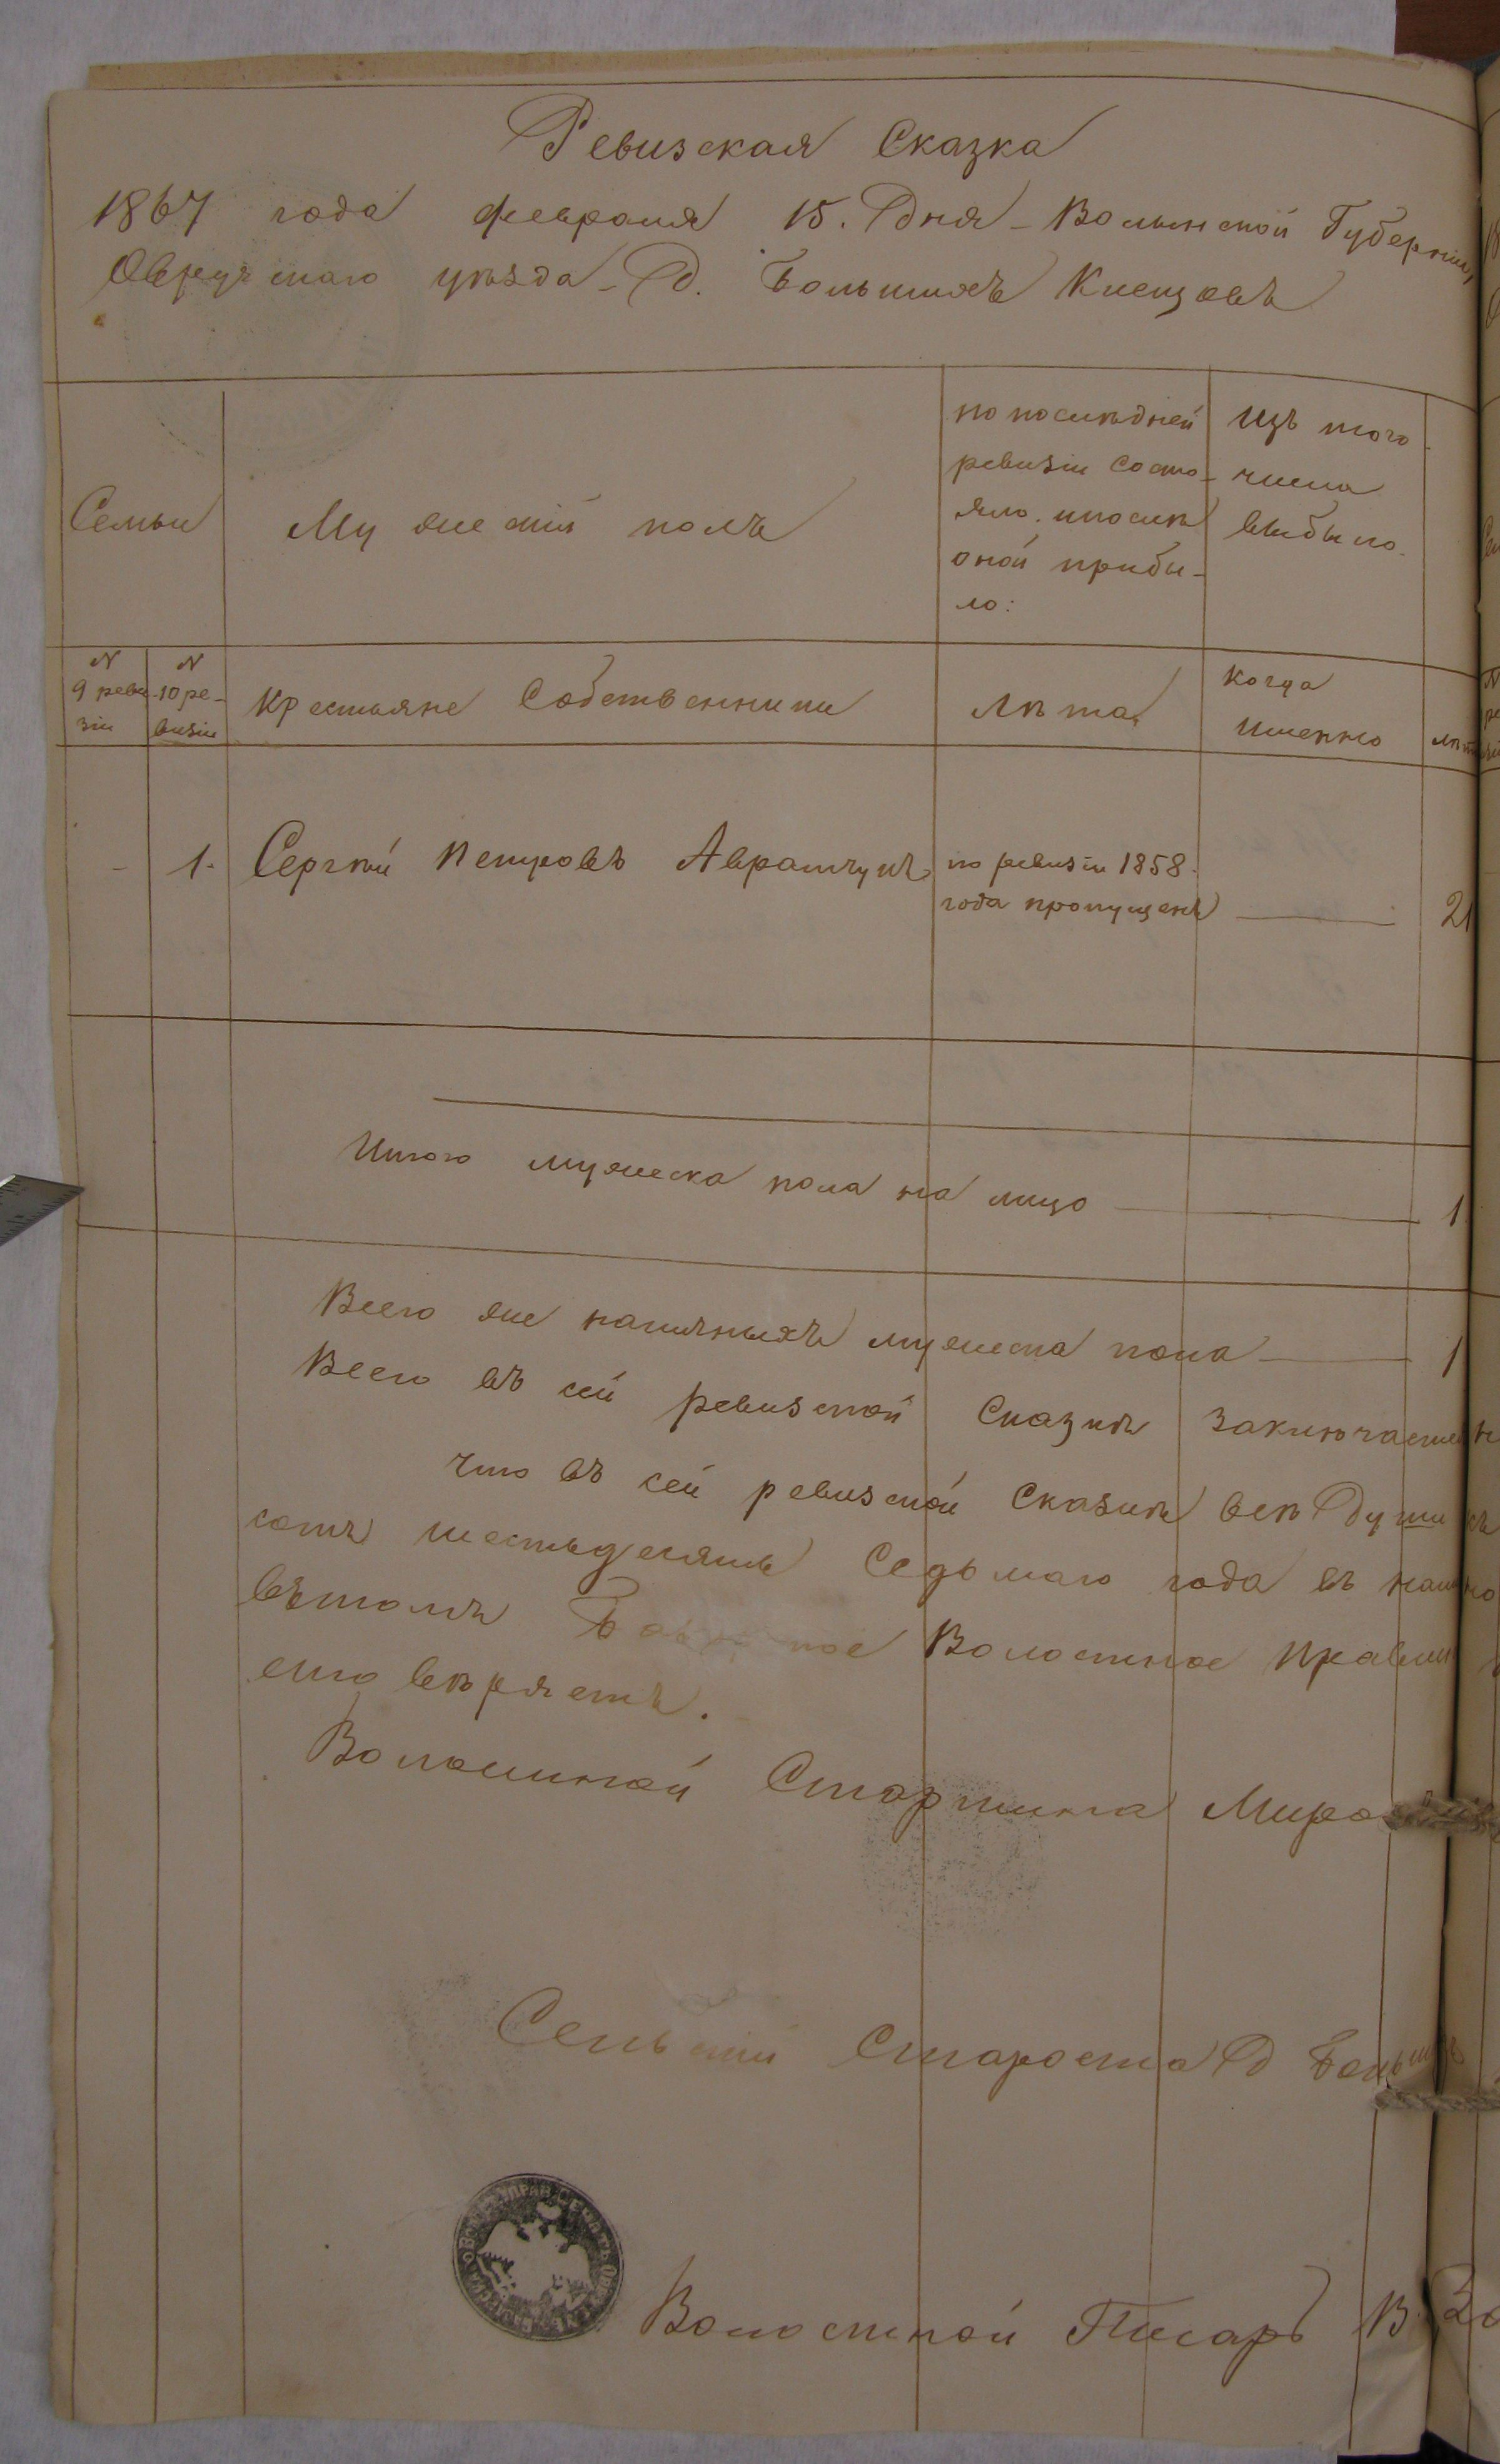 Ревизская Сказка
1867 года февраля 15. Дня - Волынской Губерніи,
Овручскаго уѣзда - Д. Большихъ Клещовъ
Семьи
Мужескій полъ
по послѣдней
ревизіи состо-
яло. и послѣ
оной прибы-
ло:
Изъ того
числа
выбыло.
N
9 реви
зіи
N
10 ре-
визіи
Крестьяне Собственники
Лѣта
когда
именно
лѣт
-
1.
Сергѣй Петровъ Авратчукъ
по ревизіи 1858.
года пропущенъ
21
Итого мужеска пола на лицо
1
Всего же наличныхъ мужеска пола
1
Всего въ сей ревизской Сказкѣ заключается
что въ сей ревизской Сказкѣ всѣ Души
сотъ шестьдесятъ Седьмаго года въ
въ томъ Волостное Правлен
ніе вѣряетъ.
Волостной Старшина Миро
Сельскій Староста Д Больших
Волостной Писарь В.